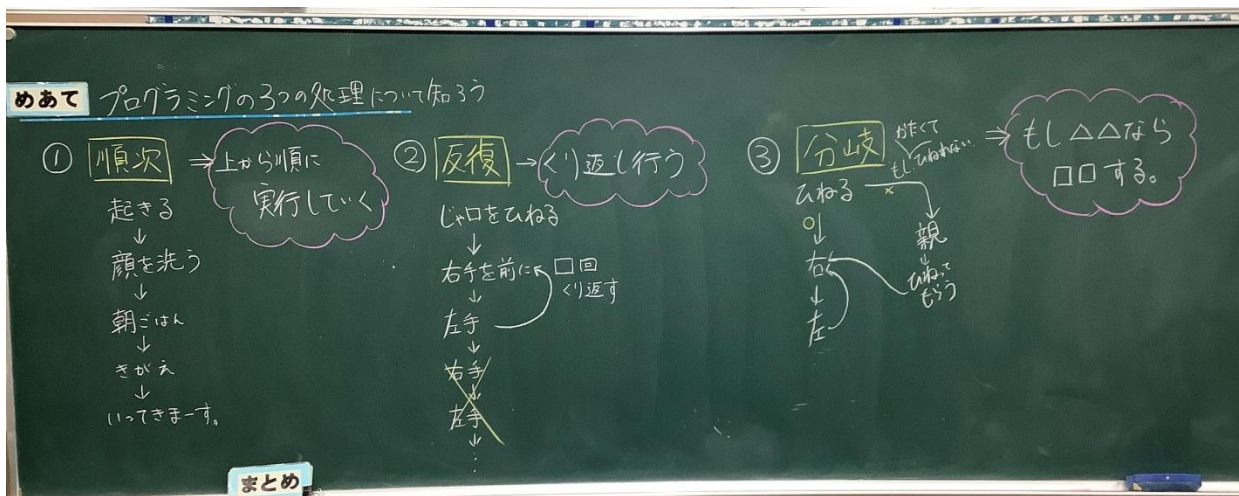 めあて プログラミングの3つの処理について知ろう
① 順次 ⇒ 上から順に
実行していく
起きる
↓
顔を洗う
↓
朝ごはん
↓
きがえ
↓
いってきまーす。
② 反復 → くり返し行う
じゃ口をひねる
↓
右手を前に
↓
左手
↓
右手
↓
左手
↓
⋮
□回
くり返す
③ 分岐
かたくて
もしひねれない
⇒ もし△△なら
□□する。
ひねる
×
○↓
右
↓
左
親
↓
ひねって
もらう
まとめ